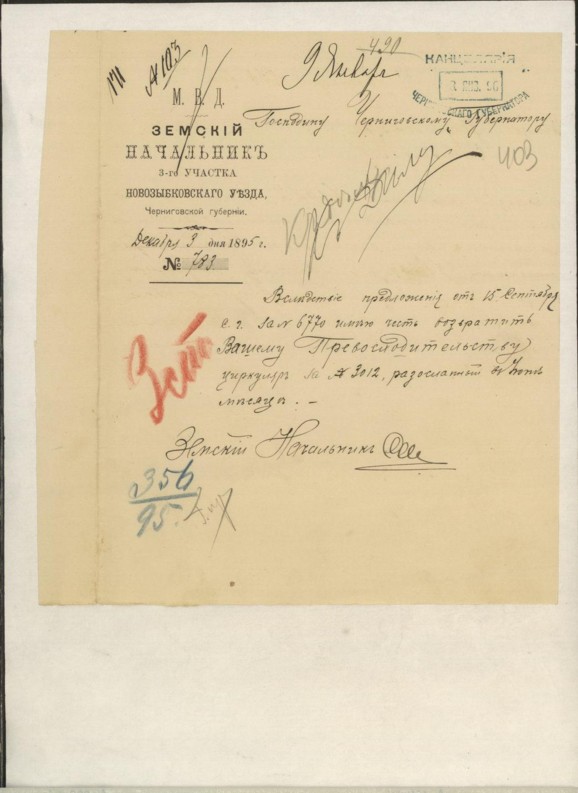 490
№ 103
9 Январ
КАНЦЕЛЯРІЯ
ЧЕРНИГОВСКАГО ГУБЕРНАТОРА
М. В. Д.
ЗЕМСКІЙ
НАЧАЛЬНИКЪ
3-го УЧАСТКА
НОВОЗЫБКОВСКАГО УѢЗДА,
Черниговской губерніи.
Декабря 3 дня 1895 г.
№ 783
Господину Черниговскому Губернатору
403
къ дѣлу
Вслѣдствіе предложенія отъ 15 Сентября
с. г. за № 6770 имѣю честь возвратить
Вашему Превосходительству
циркуляръ за № 3012, разосланный въ
мѣсяцѣ. –
Земскій Начальникъ
356
95.